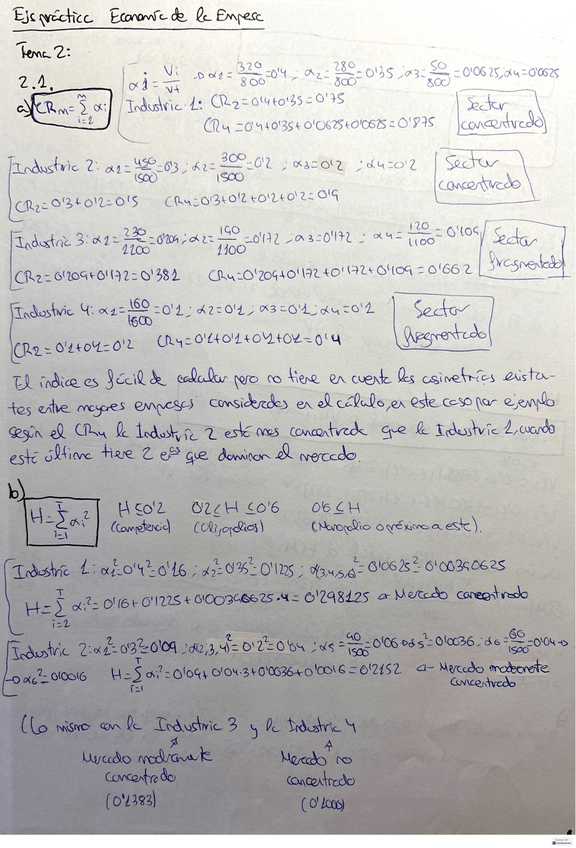 Ejs práctica Economía de la Empresa
Tema 2:
2.1.
a) CRm = Σ αi
αi = Vi/Vt → α1 = 320/800 = 0'4; α2 = 280/800 = 0'35; α3 = 50/800 = 0'0625; α4 = 0'0625
Industria 1: CR2 = 0'4+0'35 = 0'75
CR4 = 0'4+0'35+0'0625+0'0625 = 0'875
Sector concentrado
Industria 2: α1 = 450/1500 = 0'3; α2 = 300/1500 = 0'2; α3 = 0'2; α4 = 0'2
CR2 = 0'3+0'2 = 0'5 CR4 = 0'3+0'2+0'2+0'2 = 0'9
Sector concentrado
Industria 3: α1 = 230/1100 = 0'209; α2 = 190/1100 = 0'172; α3 = 0'172; α4 = 120/1100 = 0'109
CR2 = 0'209+0'172 = 0'381 CR4 = 0'209+0'172+0'172+0'109 = 0'662
Sector fragmentado
Industria 4: α1 = 160/1600 = 0'1; α2 = 0'1; α3 = 0'1; α4 = 0'1
CR2 = 0'1+0'1 = 0'2 CR4 = 0'1+0'1+0'1+0'1 = 0'4
Sector fragmentado
El índice es fácil de calcular pero no tiene en cuenta las asimetrías existen-
tes entre mayores empresas consideradas en el cálculo, en este caso por ejemplo
según el CR4 la Industria 2 está mas concentrada que la Industria 1, cuando
esta última tiene 2 eªs que dominan el mercado.
b)
H = Σ αi²
H ≤ 0'2 0'2 ≤ H ≤ 0'6 0'6 ≤ H
(Competencia) (Oligopolios) (Monopolio o próximo a este).
Industria 1: α1² = 0'4² = 0'16; α2² = 0'35² = 0'1225; α3,4,5,6² = 0'0625² = 0'00390625
H = Σ αi² = 0'16+0'1225+0'00390625·4 = 0'298125 → Mercado concentrado
Industria 2: α1² = 0'3² = 0'09; α2,3,4² = 0'2² = 0'04; α5 = 90/1500 = 0'06 → α5² = 0'0036; α6 = 60/1500 = 0'04 →
→ α6² = 0'0016 H = Σ αi² = 0'09+0'04·3+0'0036+0'0016 = 0'2152 → Mercado
concentrado
(Lo mismo con la Industria 3 y la Industria 4
Mercado Mercado no
concentrado concentrado
(0'1383) (0'1000)